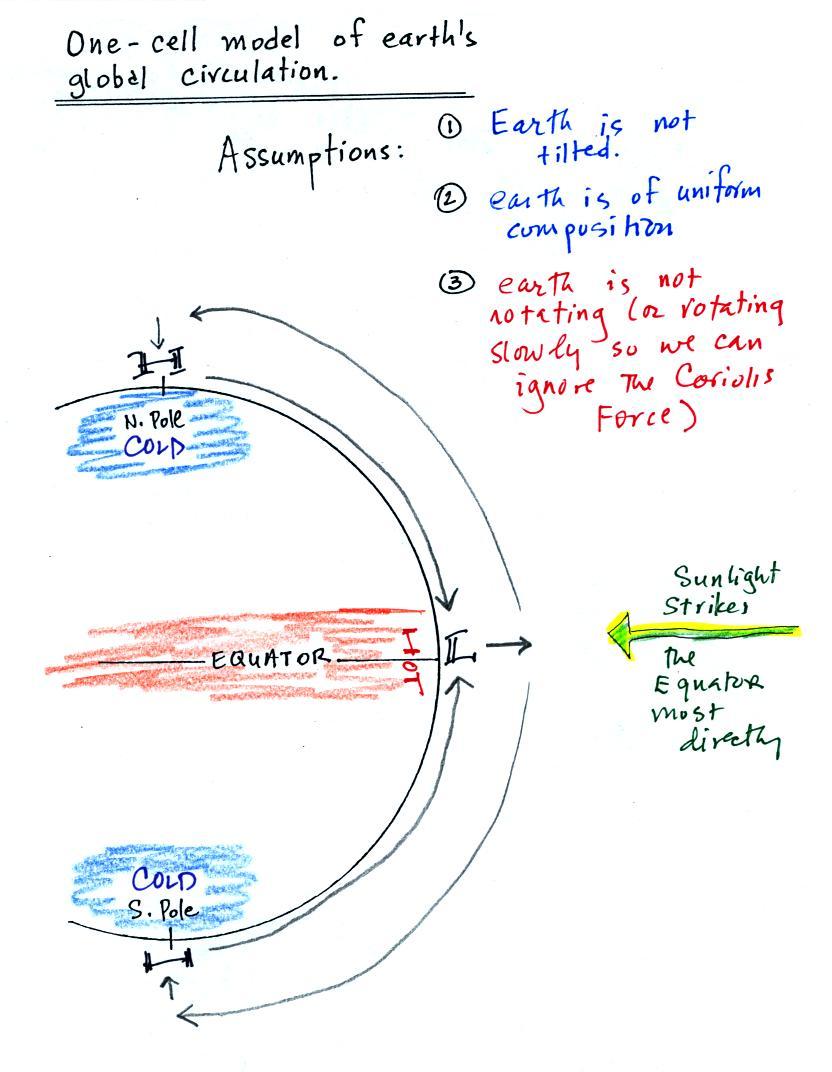 One-cell model of earth's
global circulation.
Assumptions:
① Earth is not
tilted.
② earth is of uniform
composition
③ earth is not
rotating (or rotating
slowly so we can
ignore The Coriolis
Force)
H
N. Pole
COLD
Sunlight
Strikes
the
Equator
most
directly
EQUATOR
HOT
L
COLD
S. Pole
H